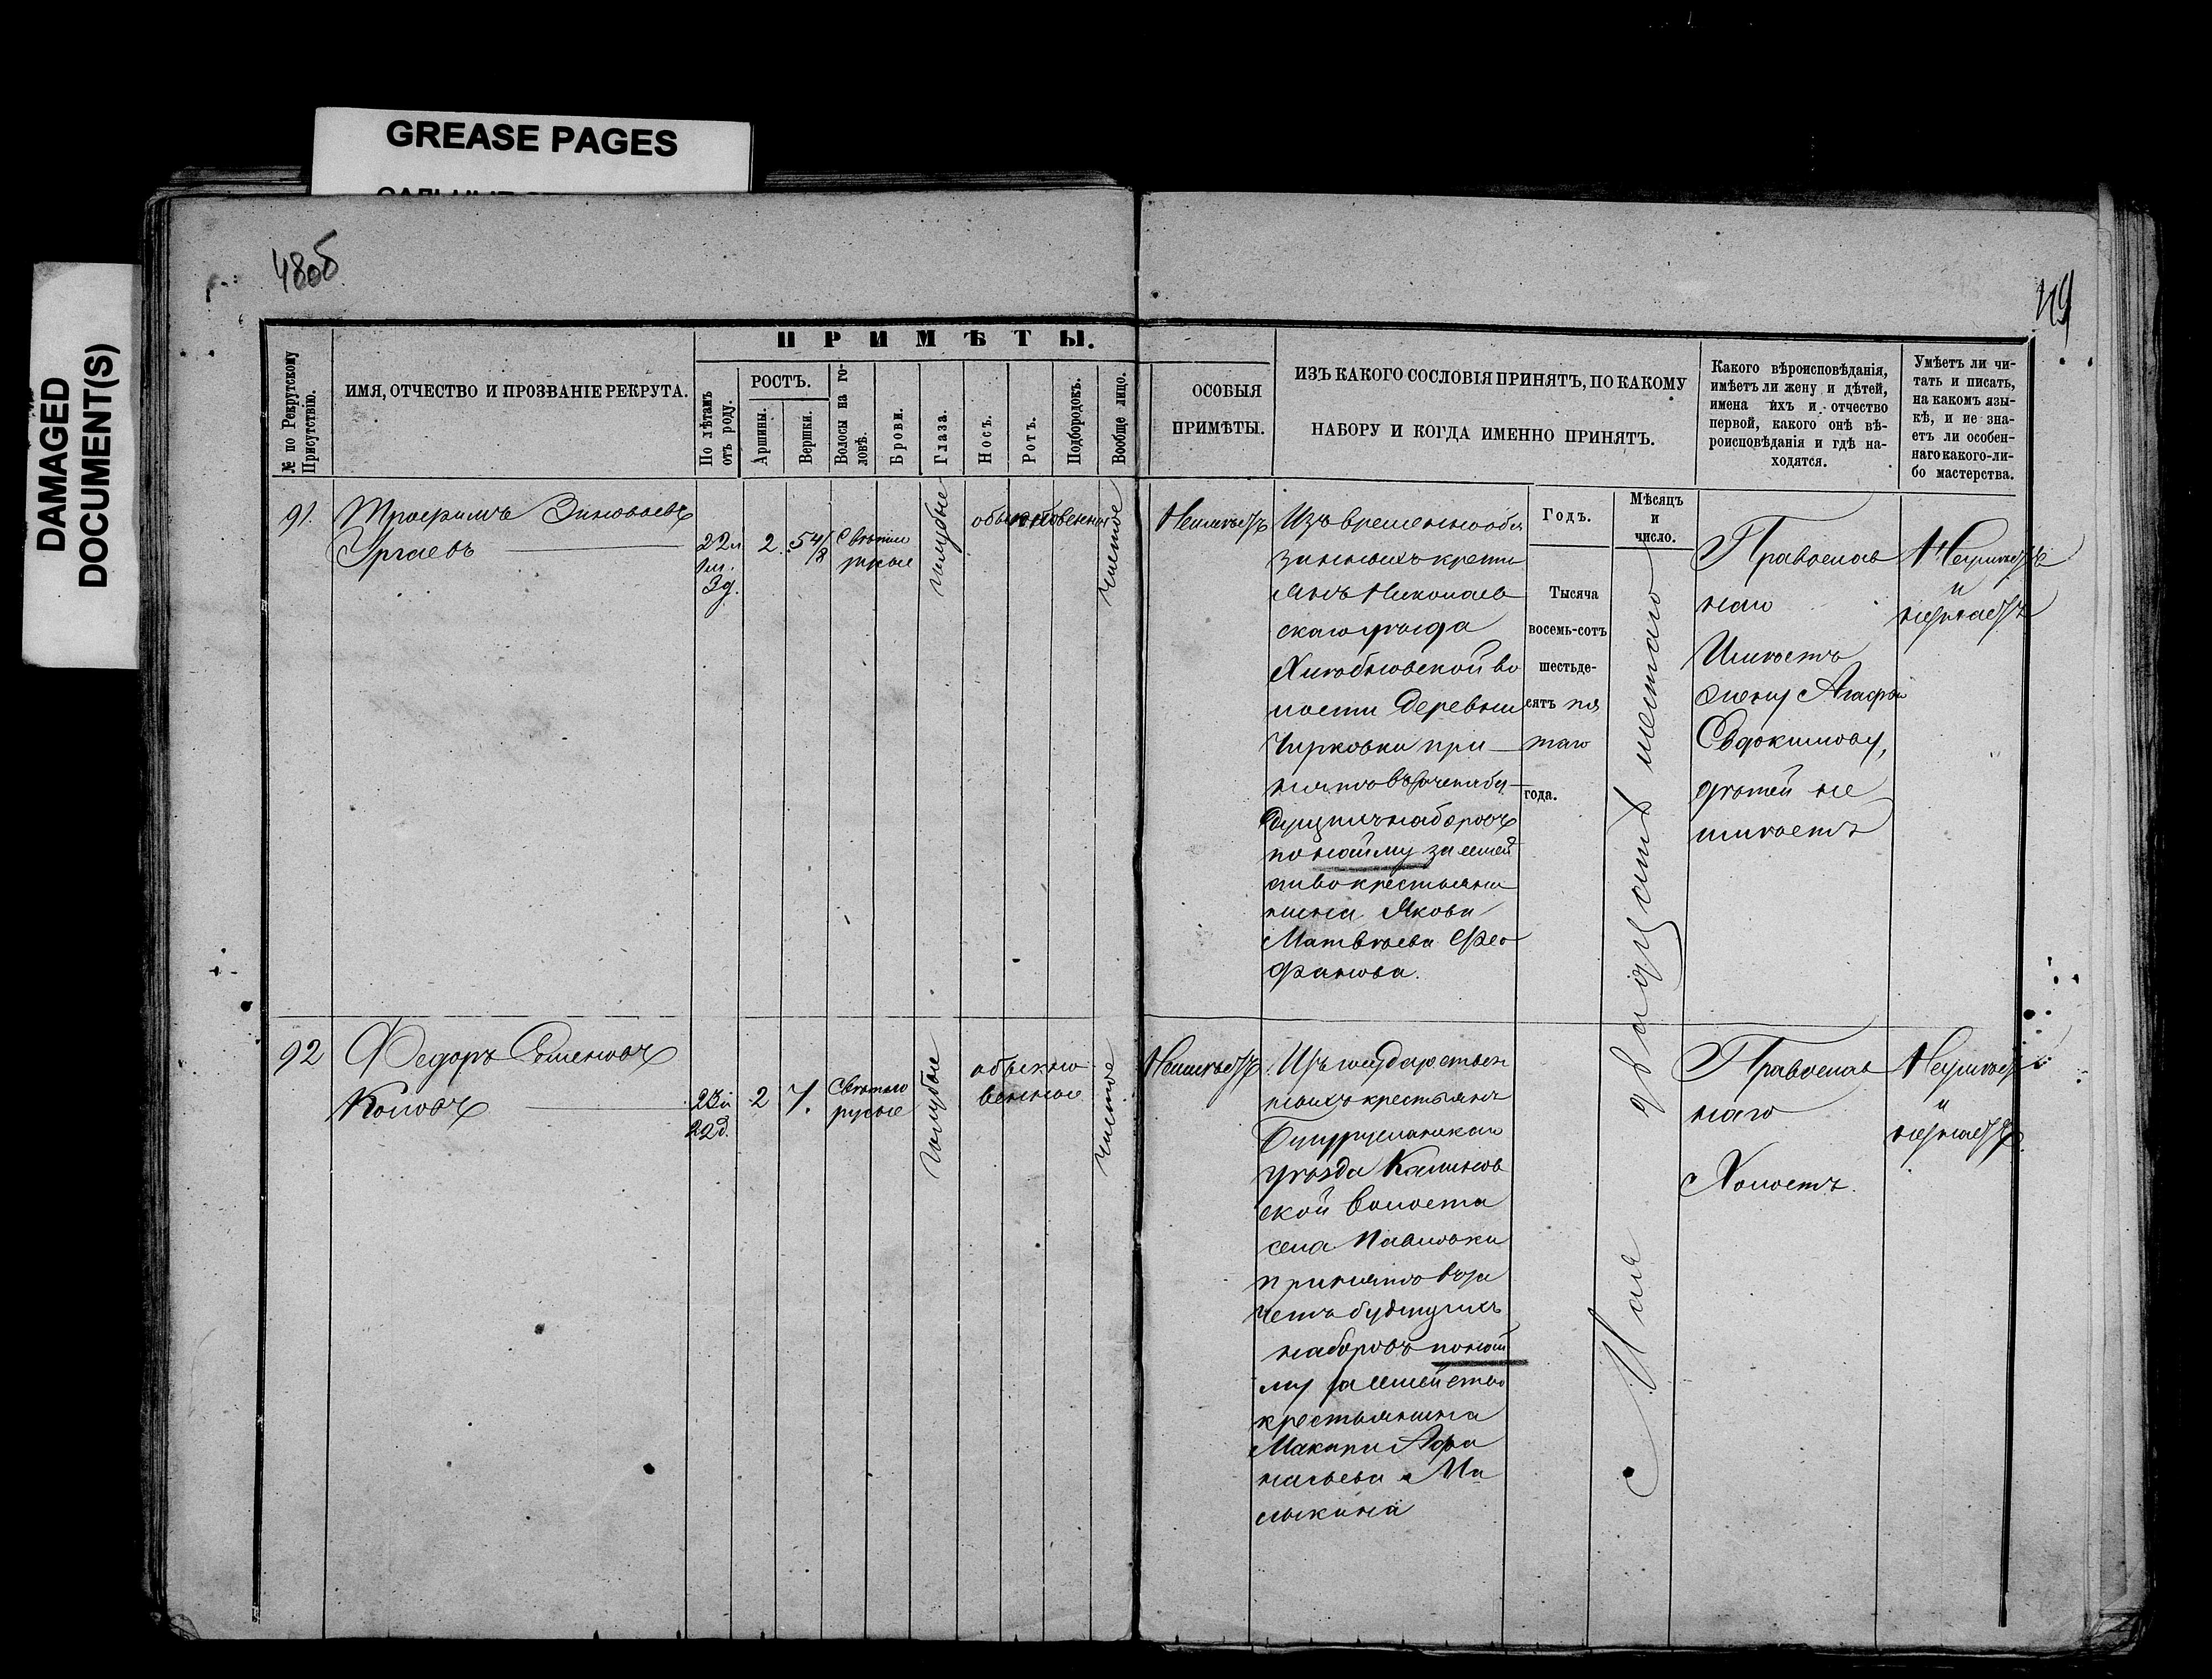 GREASE PAGES
DAMAGED
DOCUMENT(S)
48об
49
№ по Рекрутскому Присутствію.
ИМЯ, ОТЧЕСТВО И ПРОЗВАНІЕ РЕКРУТА.
ПРИМѢТЫ.
По лѣтамъ отъ роду.
РОСТЪ.
Аршины.
Вершки.
Волосы на головѣ.
Брови.
Глаза.
Носъ.
Ротъ.
Подбородокъ.
Вообще лицо.
ОСОБЫЯ
ПРИМѢТЫ.
ИЗЪ КАКОГО СОСЛОВІЯ ПРИНЯТЪ, ПО КАКОМУ
НАБОРУ И КОГДА ИМЕННО ПРИНЯТЪ.
Какого вѣроисповѣданія,
имѣетъ ли жену и дѣтей,
имена ихъ и отчество
первой, какого онѣ вѣ-
роисповѣданія и гдѣ на-
ходятся.
Умѣетъ ли чи-
тать и писать,
на какомъ язы-
кѣ, и не зна-
етъ ли особен-
наго какого-ли-
бо мастерства.
91.
Трофимъ Зиновьевъ
Ургаевъ
22 л
1 м.
3 д.
2.
5 4/8
Свѣтло
русые
голубые
обыкновенное
чистое
Неимѣетъ
Изъ временнооб
занныхъ крестьянъ
Николаев
скаго уѣзда
Хлѣбновской во
лости деревни
Чирковки при
нятъ въ зачетъ бу
дущихъ наборовъ
по найму за семей
ство крестьяни
нина Якова
Матвѣева Фео
фанова.
Годъ.
Тысяча
восемь-сотъ
шестьде-
сятъ пя
таго
года.
Мѣсяцъ
и
число.
Мая двадцать шестаго
Православ
наго
Имѣетъ
жену Агафью
Евдокимову,
дѣтей не
имѣетъ
Неумѣетъ
и
незнаетъ
92
Федоръ Семеновъ
Котовъ
23 л
22 д.
2
7.
Свѣтло
русые
голубые
обыкно
венное
чистое
Неимѣетъ
Изъ государствен
ныхъ крестьянъ
Бугурусланскаго
уѣзда Калинов
ской волости
села Павловки
принятъ въ за
четъ будущихъ
наборовъ по най
му за семейство
крестьянина
Макара Афа
насьева Ма
лыкина
Православ
наго
Холостъ.
Неумѣетъ
и
незнаетъ.